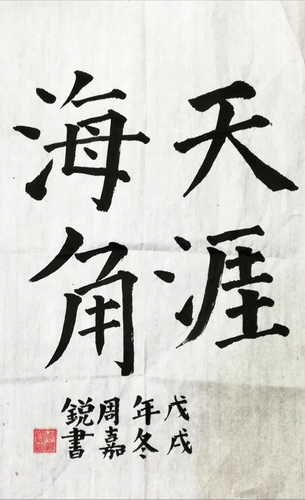 天涯
海角
戊戌
年冬
周嘉
鋭書